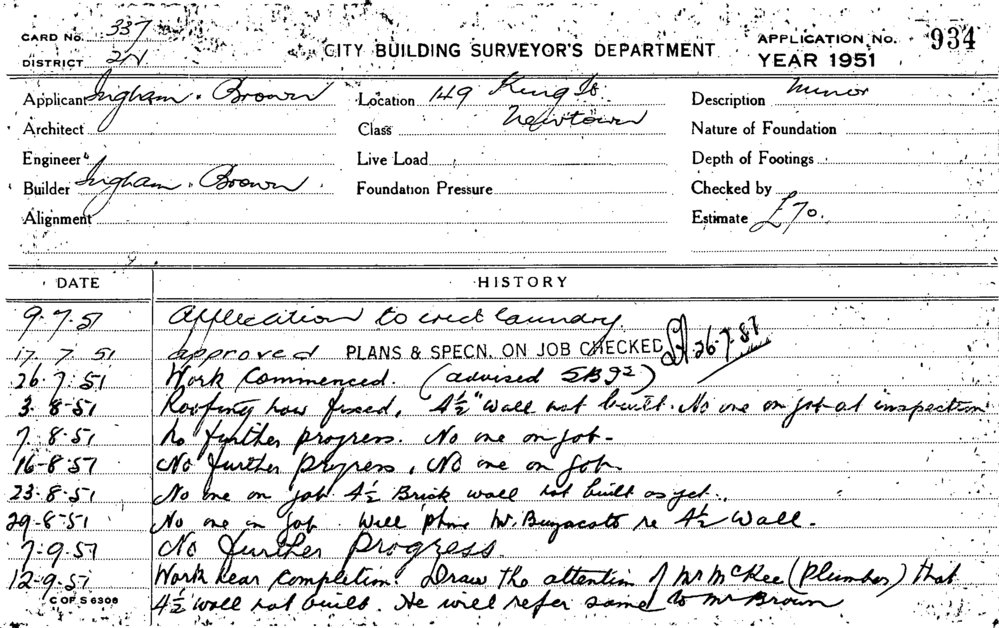 CARD No. 337
DISTRICT 2N
CITY BUILDING SURVEYOR'S DEPARTMENT
APPLICATION No. 934
YEAR 1951
Applicant Ingham. Brown Location 149 King St Description Minor
Architect Class Newtown Nature of Foundation
Engineer Live Load Depth of Footings
Builder Ingham. Brown Foundation Pressure Checked by
Alignment Estimate £70.
DATE HISTORY
9.7.51 Application to erect laundry
17.7.51 approved PLANS & SPECN. ON JOB CHECKED 26.7.51
26.7.51 Work Commenced. (advised
3.8.51 Roofing now fixed, 4½" wall not built. No one on job at inspection
7.8.51 No further progress. No one on job.
16-8.51 No further progress, No one on job.
23.8.51 No one on job 4½ Brick wall not built as yet.
29-8-51 No one on job. Will phone Mr. re 4½ Wall.
7-9.51 No further Progress.
12-9.51 Work near Completion. Draw the attention of Mr McKee (Plumber) that
4½ wall not built. He will refer same to Mr Brown
C OF S 6306